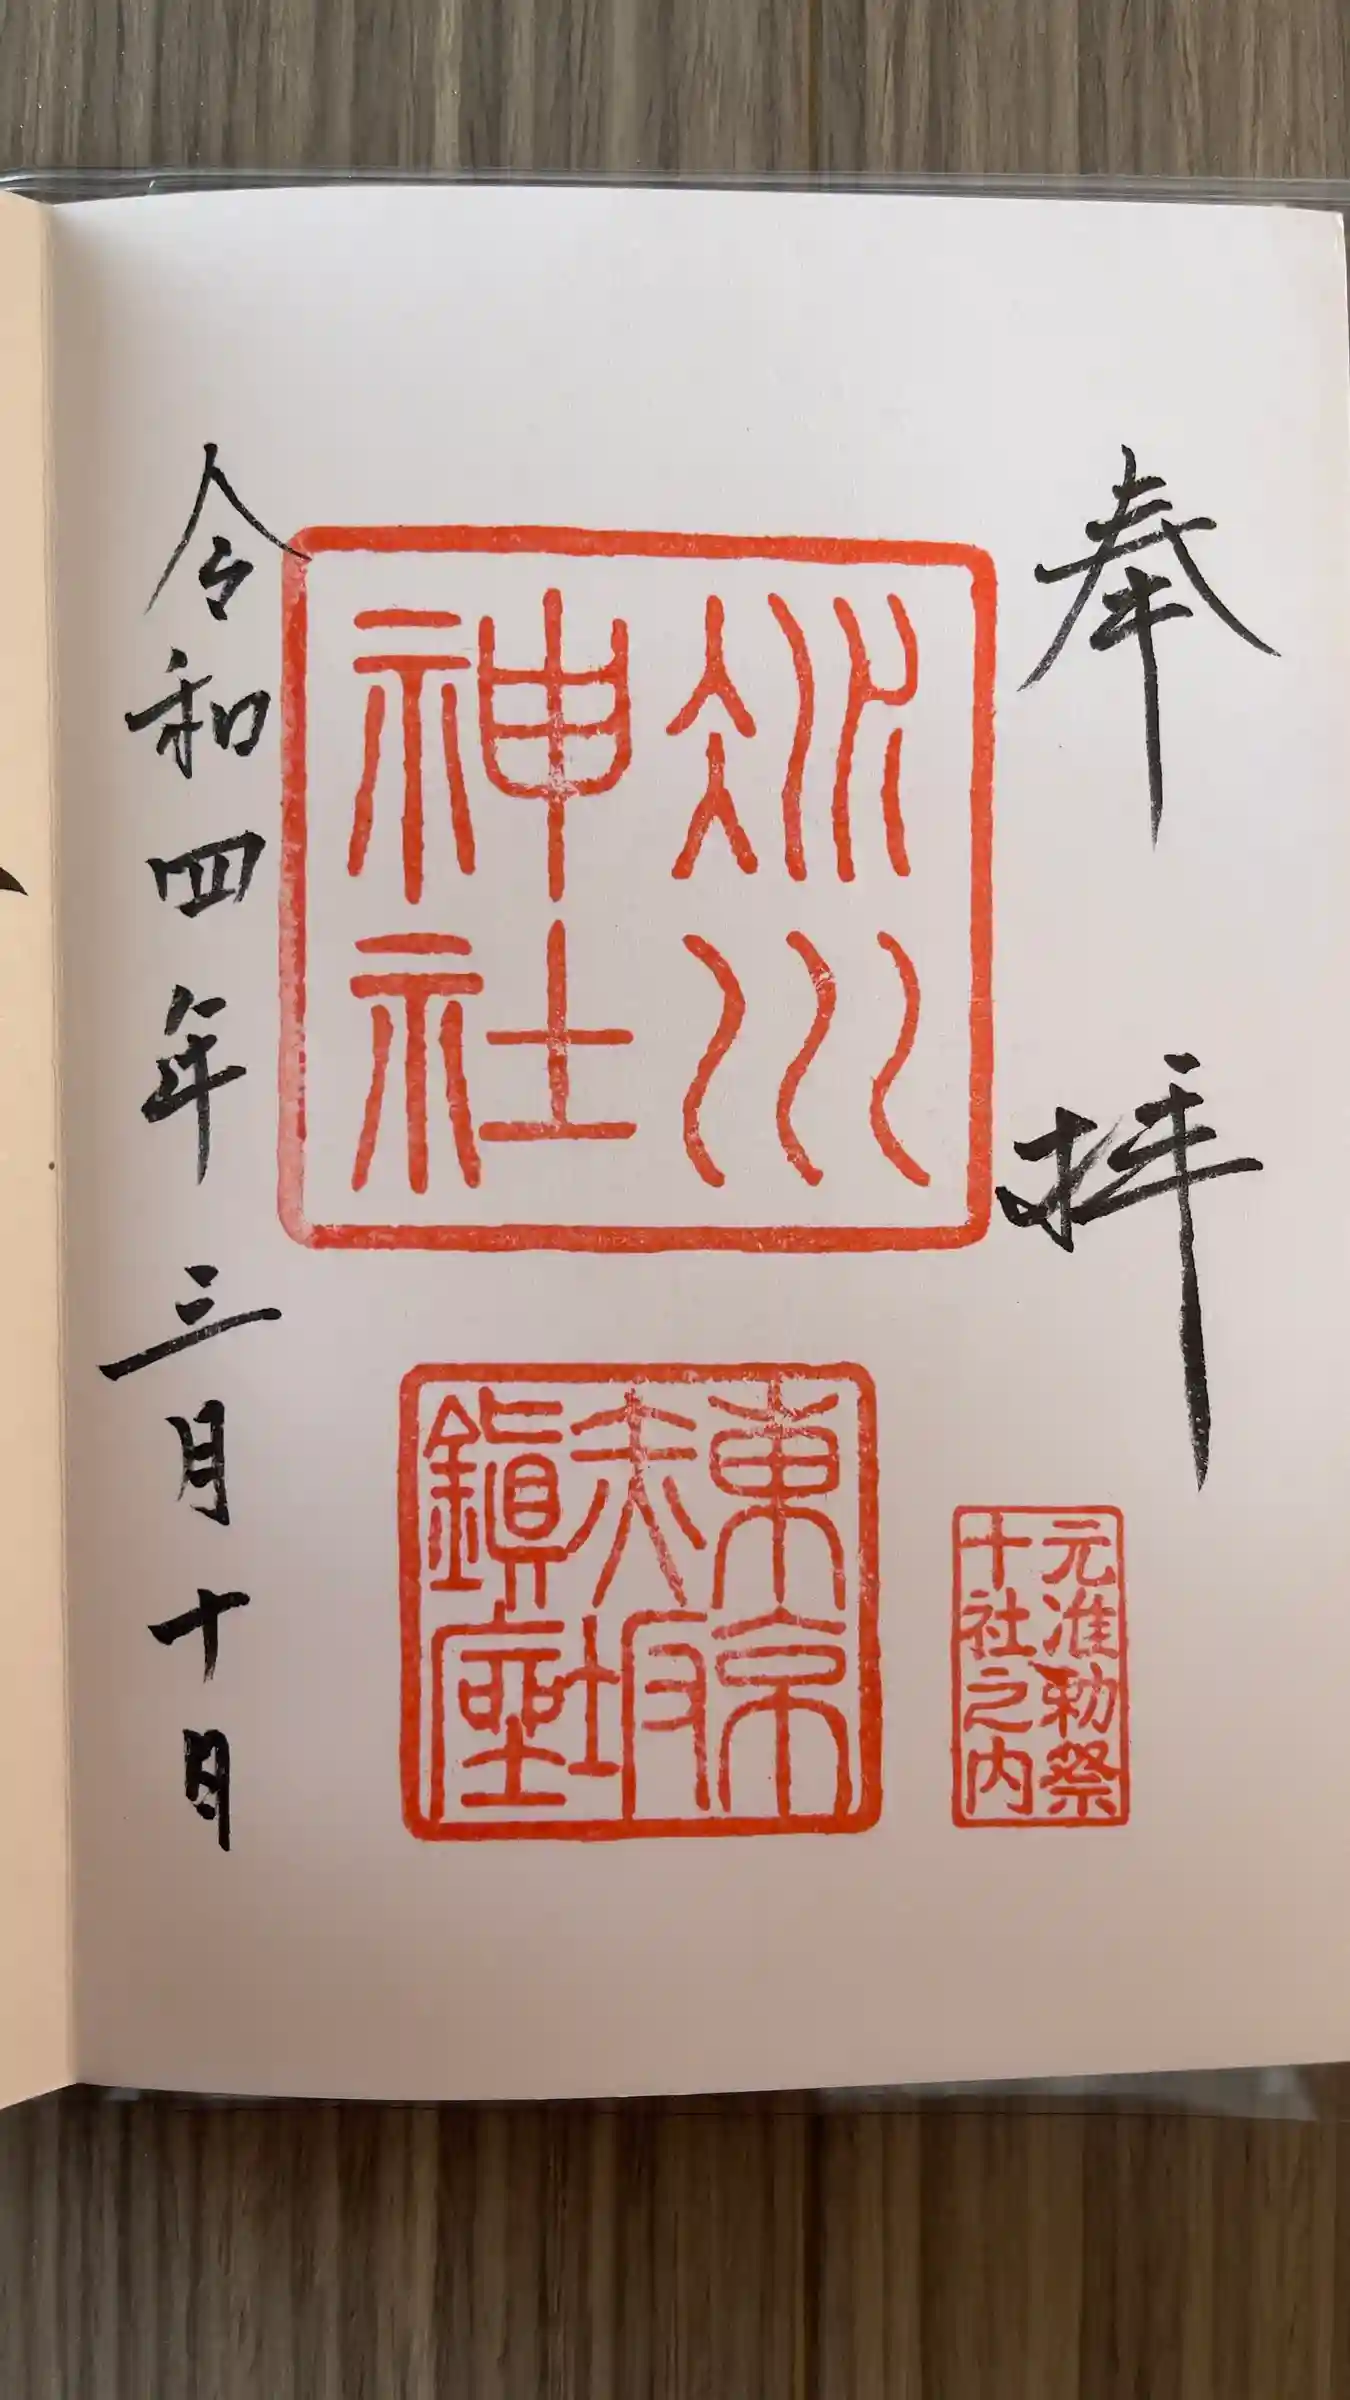 奉拝
氷川
神社
元准勅祭
十社之内
東京
赤坂
鎮座
令和四年三月十日